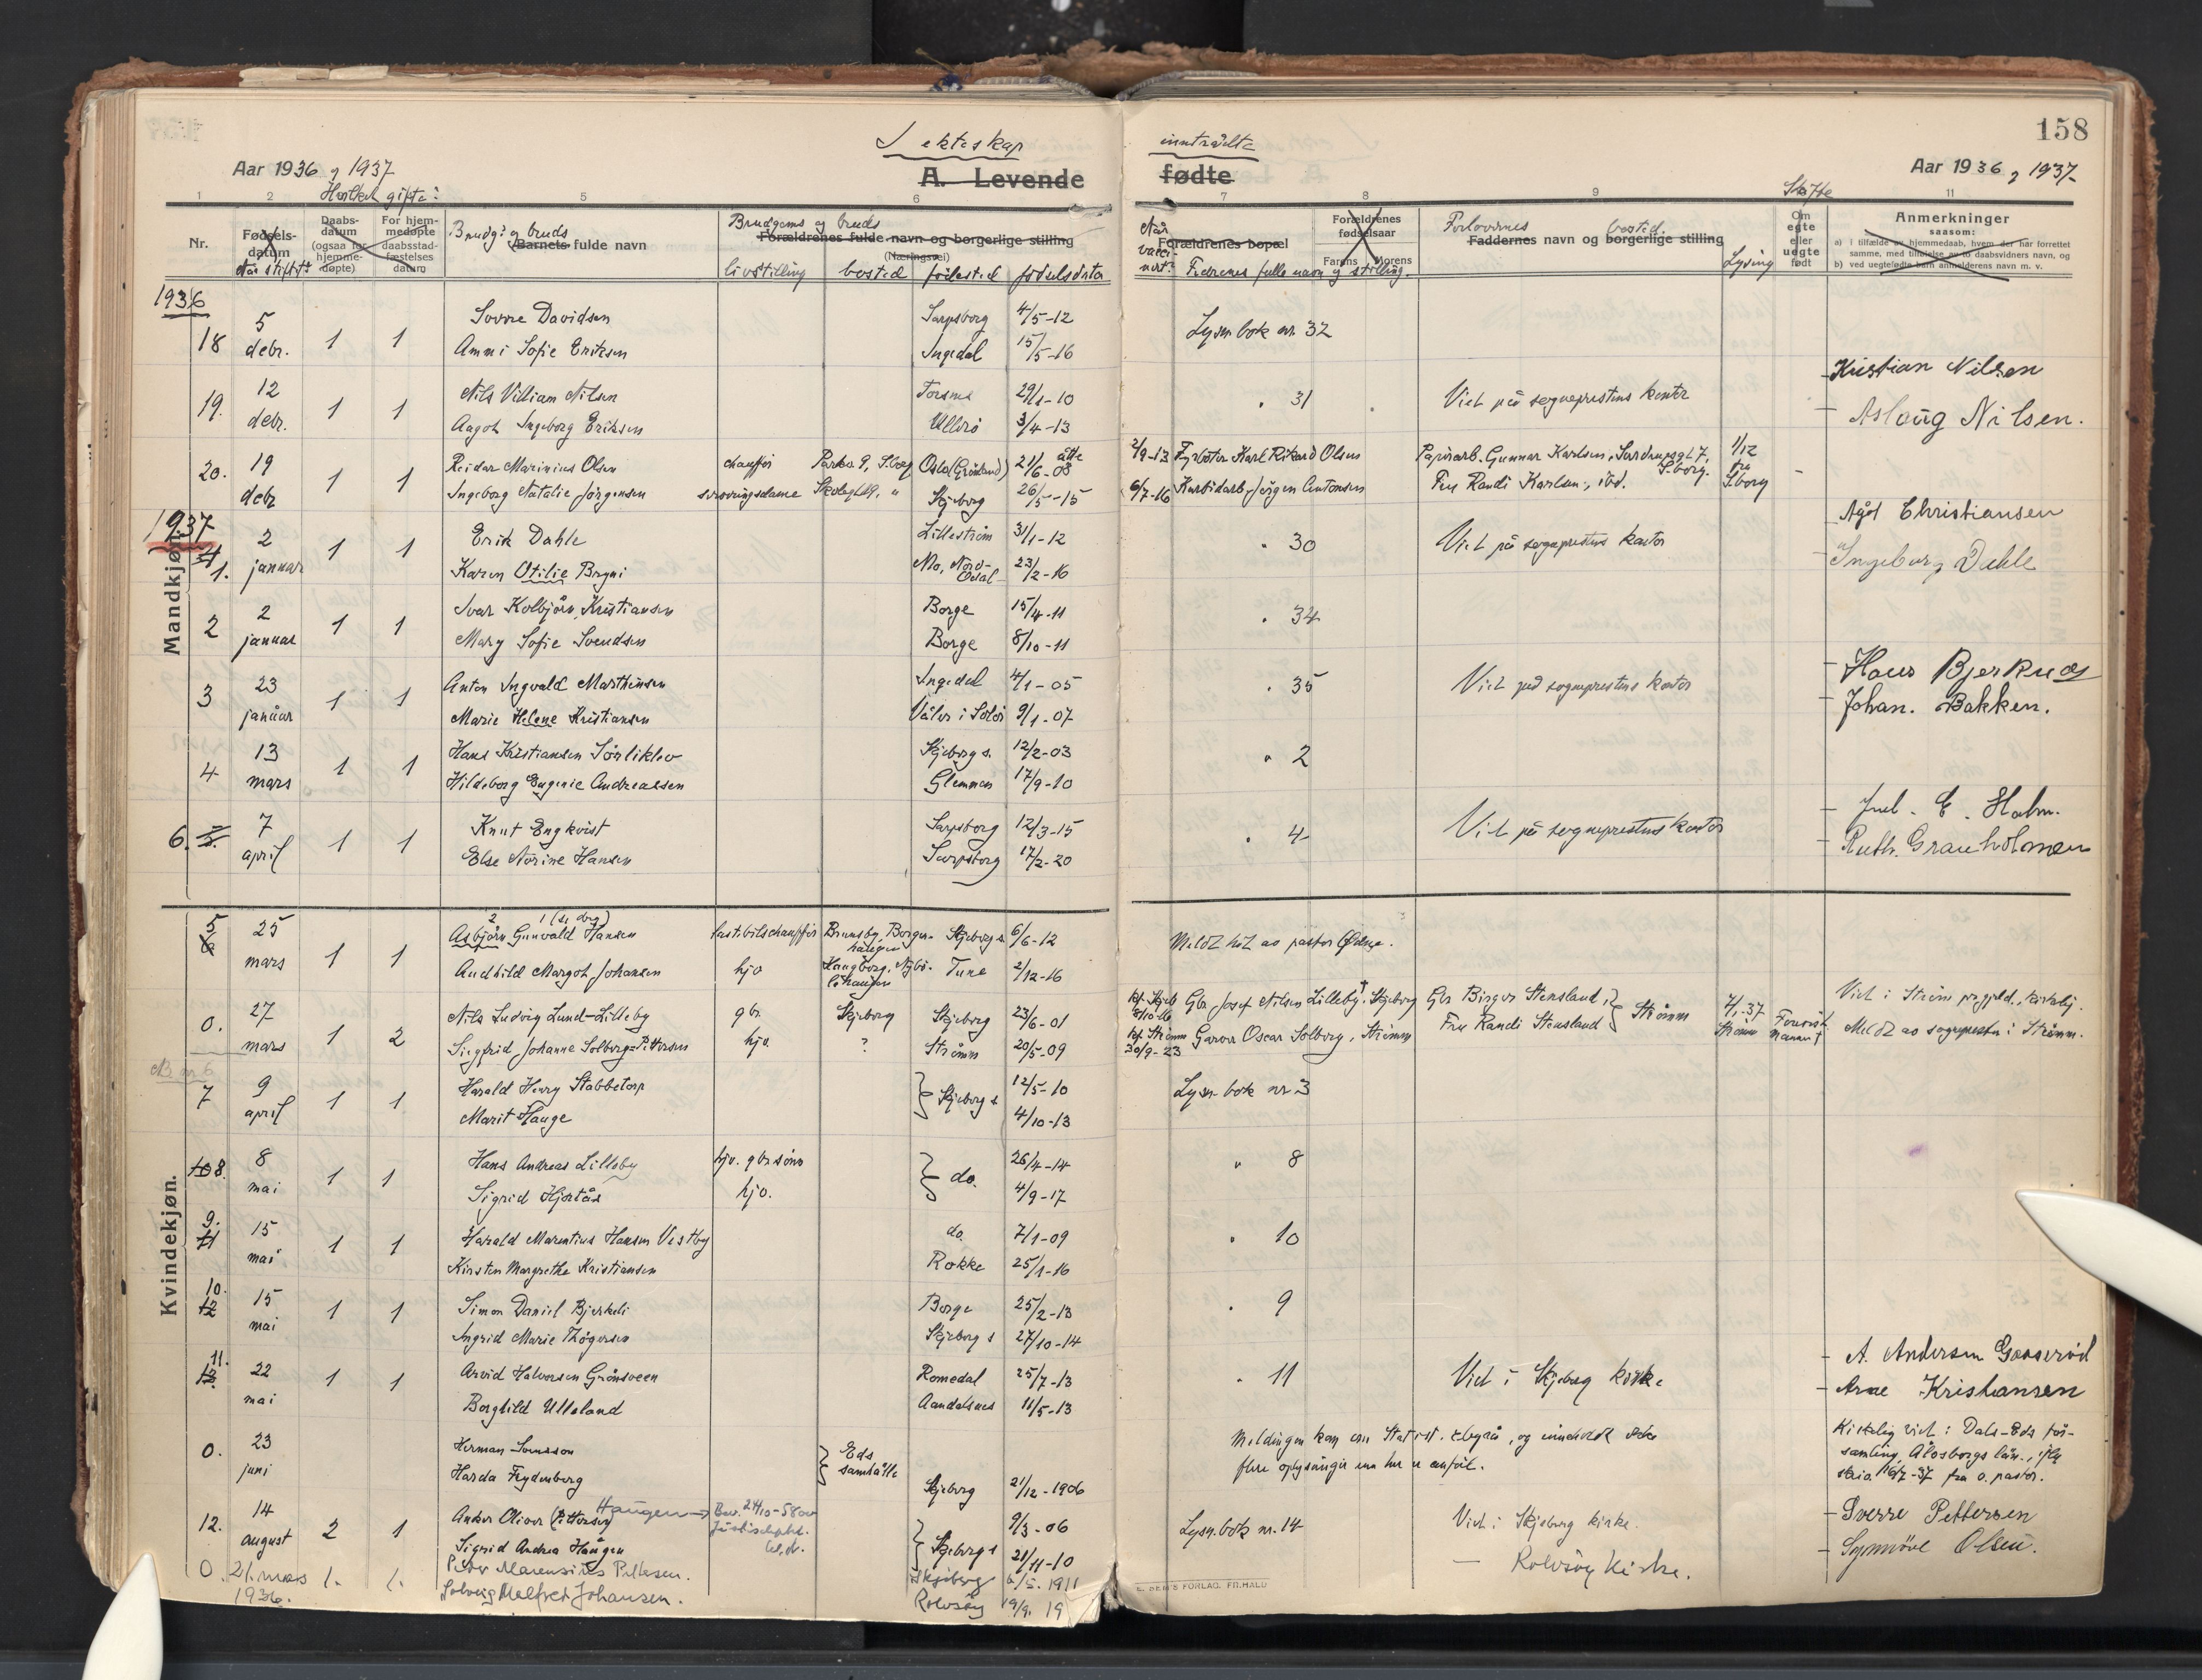 158
I ekteskap inntrådte
Aar 1936 og 1937
A. Levende fødte
Aar 1936 og 1937
Hvilket gifte:
Skifte
1 2 5 6 7 8 9 11
Nr.
Fødsels-datum
Når stiftet
Daabs-datum (ogsaa for hjemme-døpte)
For hjem-medøpte daabsstad-fæstelses datum
Brudg.s og bruds
Barnets fulde navn
Brudgoms og bruds
Forældrenes fulde navn og borgerlige stilling
(Næringsvei)
livsstilling bosted fødested fødselsdata
Når vacci-nert?
Forældrenes bopæl
Fedrenes fulle navn og stilling.
Forældrenes fødselsaar
Farens Morens
Forlovernes bosted
Faddernes navn og borgerlige stilling
Lysing
Om egte eller uegte født
Anmerkninger
saasom:
a) i tilfælde av hjemmedaab, hvem der har forrettet samme, med tilføielse av to daabsvidners navn, og
b) ved uegtefødte barn anmelderens navn m. v.
1936
18 5 debr. 1 1 Sverre Davidsen Sarpsborg 4/5-12 Lysn. bok nr. 32
Anni Sofie Eriksen Ingedal 15/5-16
19. 12 debr. 1 1 Nils Villiam Nilsen 29/1-10 " 31 Viet på sogneprestens kontor Kristian Nilsen
Aagot Ingeborg Eriksen Ullerø 3/4-13 Aslaug Nilsen.
20. 19 debr 1 1 Reidar Marinius Olsen chauffør Parkv. 9, S.borg Oslo (Grønland) 21/6-08 åtte 2/9-13 Fyrbøter Karl Rikard Olsen Papirarb. Gunnar Karlsen, S.borg. 1/12 fra S.borg
Ingeborg Natalie Jørgensen serveringsdame " Skjeberg 26/5-15 6/7-16 Karbidarb. Jørgen Antonsen Fru Randi Karlsen, ibd.
1937
Mandkjøn.
1. 2 januar 1 1 Erik Dahle Lillestrøm 31/1-12 " 30 Viet på sogneprestens kontor Agot Christiansen
Karen Otilie Bryni Mo, Nord-Odal 23/2-16 Ingeborg Dahle
2 2 januar 1 1 Ivar Kolbjørn Kristiansen Borge 15/4-11 " 34
Mary Sofie Svendsen Borge 8/10-11
3 23 januar 1 1 Anton Ingvald Marthinsen Ingedal 4/1-05 " 35 Viet på sogneprestens kontor Hans Bjerknes
Marie Helene Kristiansen Våler i Solør 9/1-07 Johan. Bakken.
4 13 mars 1 1 Hans Kristiansen Sørliklev Skjeberg s. 12/2-03 " 2
Hildeborg Eugenie Andreassen Glemmen 17/9-10
6. 5. 7 april 1 1 Knut Engkvist Sarpsborg 12/3-15 " 4 Viet på sogneprestens kontor Juel. E. Holm.
Else Nørine Hansen Sarpsborg 17/2-20 Ruth. Granholmen
5 6 25 mars 1 1 2 1 (se dvg) Asbjørn Gunvald Hansen lastebilchauffør Brunsby, Borgen-haugen Skjeberg s. 6/6-12 Meldt hit av pastor
Audhild Margot Johansen hjv Tune 2/12-16
0. 27 mars 1 2 Nils Ludvig Lund-Lilleby gbr. Skjeberg Skjeberg 23/6-01 Gbr. Josef Nilsen Lilleby †, Skjeberg Gbr Birger Stensland, } Strømm 4/1-37 Strømm Viet i Strøm pr.gjeld., kirkelig.
Siegfrid Johanne Solberg-Pettersen hjv. ? Strømm 20/5-09 30/9-23 Garver Oscar Solberg, Strømm Fru Randi Stensland Meldt av sognepresten i Strømm.
B nr 6
Kvindekjøn.
7 9 april 1 1 Harald Henry Stabbetorp } Skjeberg s 12/5-10 Lysn. bok nr 3
Marit Hauge 4/10-13
10 8. 8 mai 1 1 Hans Andreas Lilleby hjv. gbr.sønn } do. 26/4-14 " 8
Sigrid Hjortås hjv. 4/9-17
9. 11 15 mai 1 1 Harald Marentius Hansen Vestby do. 7/1-09 " 10
Kirsten Margrethe Kristiansen Rokke 25/1-16
10. 12 15 mai 1 1 Simon Daniel Bjerkeli Borge 25/2-13 " 9
Ingrid Marie Thøgersen Skjeberg s 27/10-14
11. 13. 22 mai 1 1 Arvid Halvorsen Grønsveen Romedal 25/7-13 " 11 Viet i Skjeberg kirke A. Andersen Gaaserød
Borghild Ulleland Aandalsnes 11/5-13 Arne Kristiansen
0. 23 juni Herman Svensson } Eds samhälle Meldingen kom inn Statist. Cbyrå, og inneholdt ikke Kirkelig viet i Dals-Eds för-
Harda Frydenberg Skjeberg 21/12-1906 flere oplysninger enn her er anført. samling, Älvsborgs län., ifg skriv. 16/7-37 fra s. pastor.
12. 14 august 2 1 Anker Oliver (Pettersen) Haugen → Bev. 24/10-58 av Justisdept. 9/3-06 Lysn. bok nr. 14 Viet i Skjeberg kirke. Sverre Pettersen
Sigrid Andrea Haugen } Skjeberg s 21/11-10 Synnøve Olsen.
0. 21. mars 1936. 1. 1. Peder Marensius Pettersen. Skjeberg 6/5. 1911 — Rolvsøy Kirke.
Solveig Malfred Johansen. Rolvsøy 19/9. 19
E. SEM'S FORLAG. FR.HALD